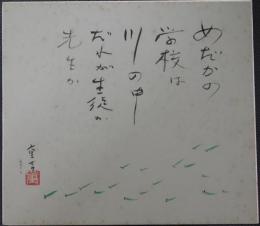 めだかの
学校は
川の中
だれが生徒か
先生か